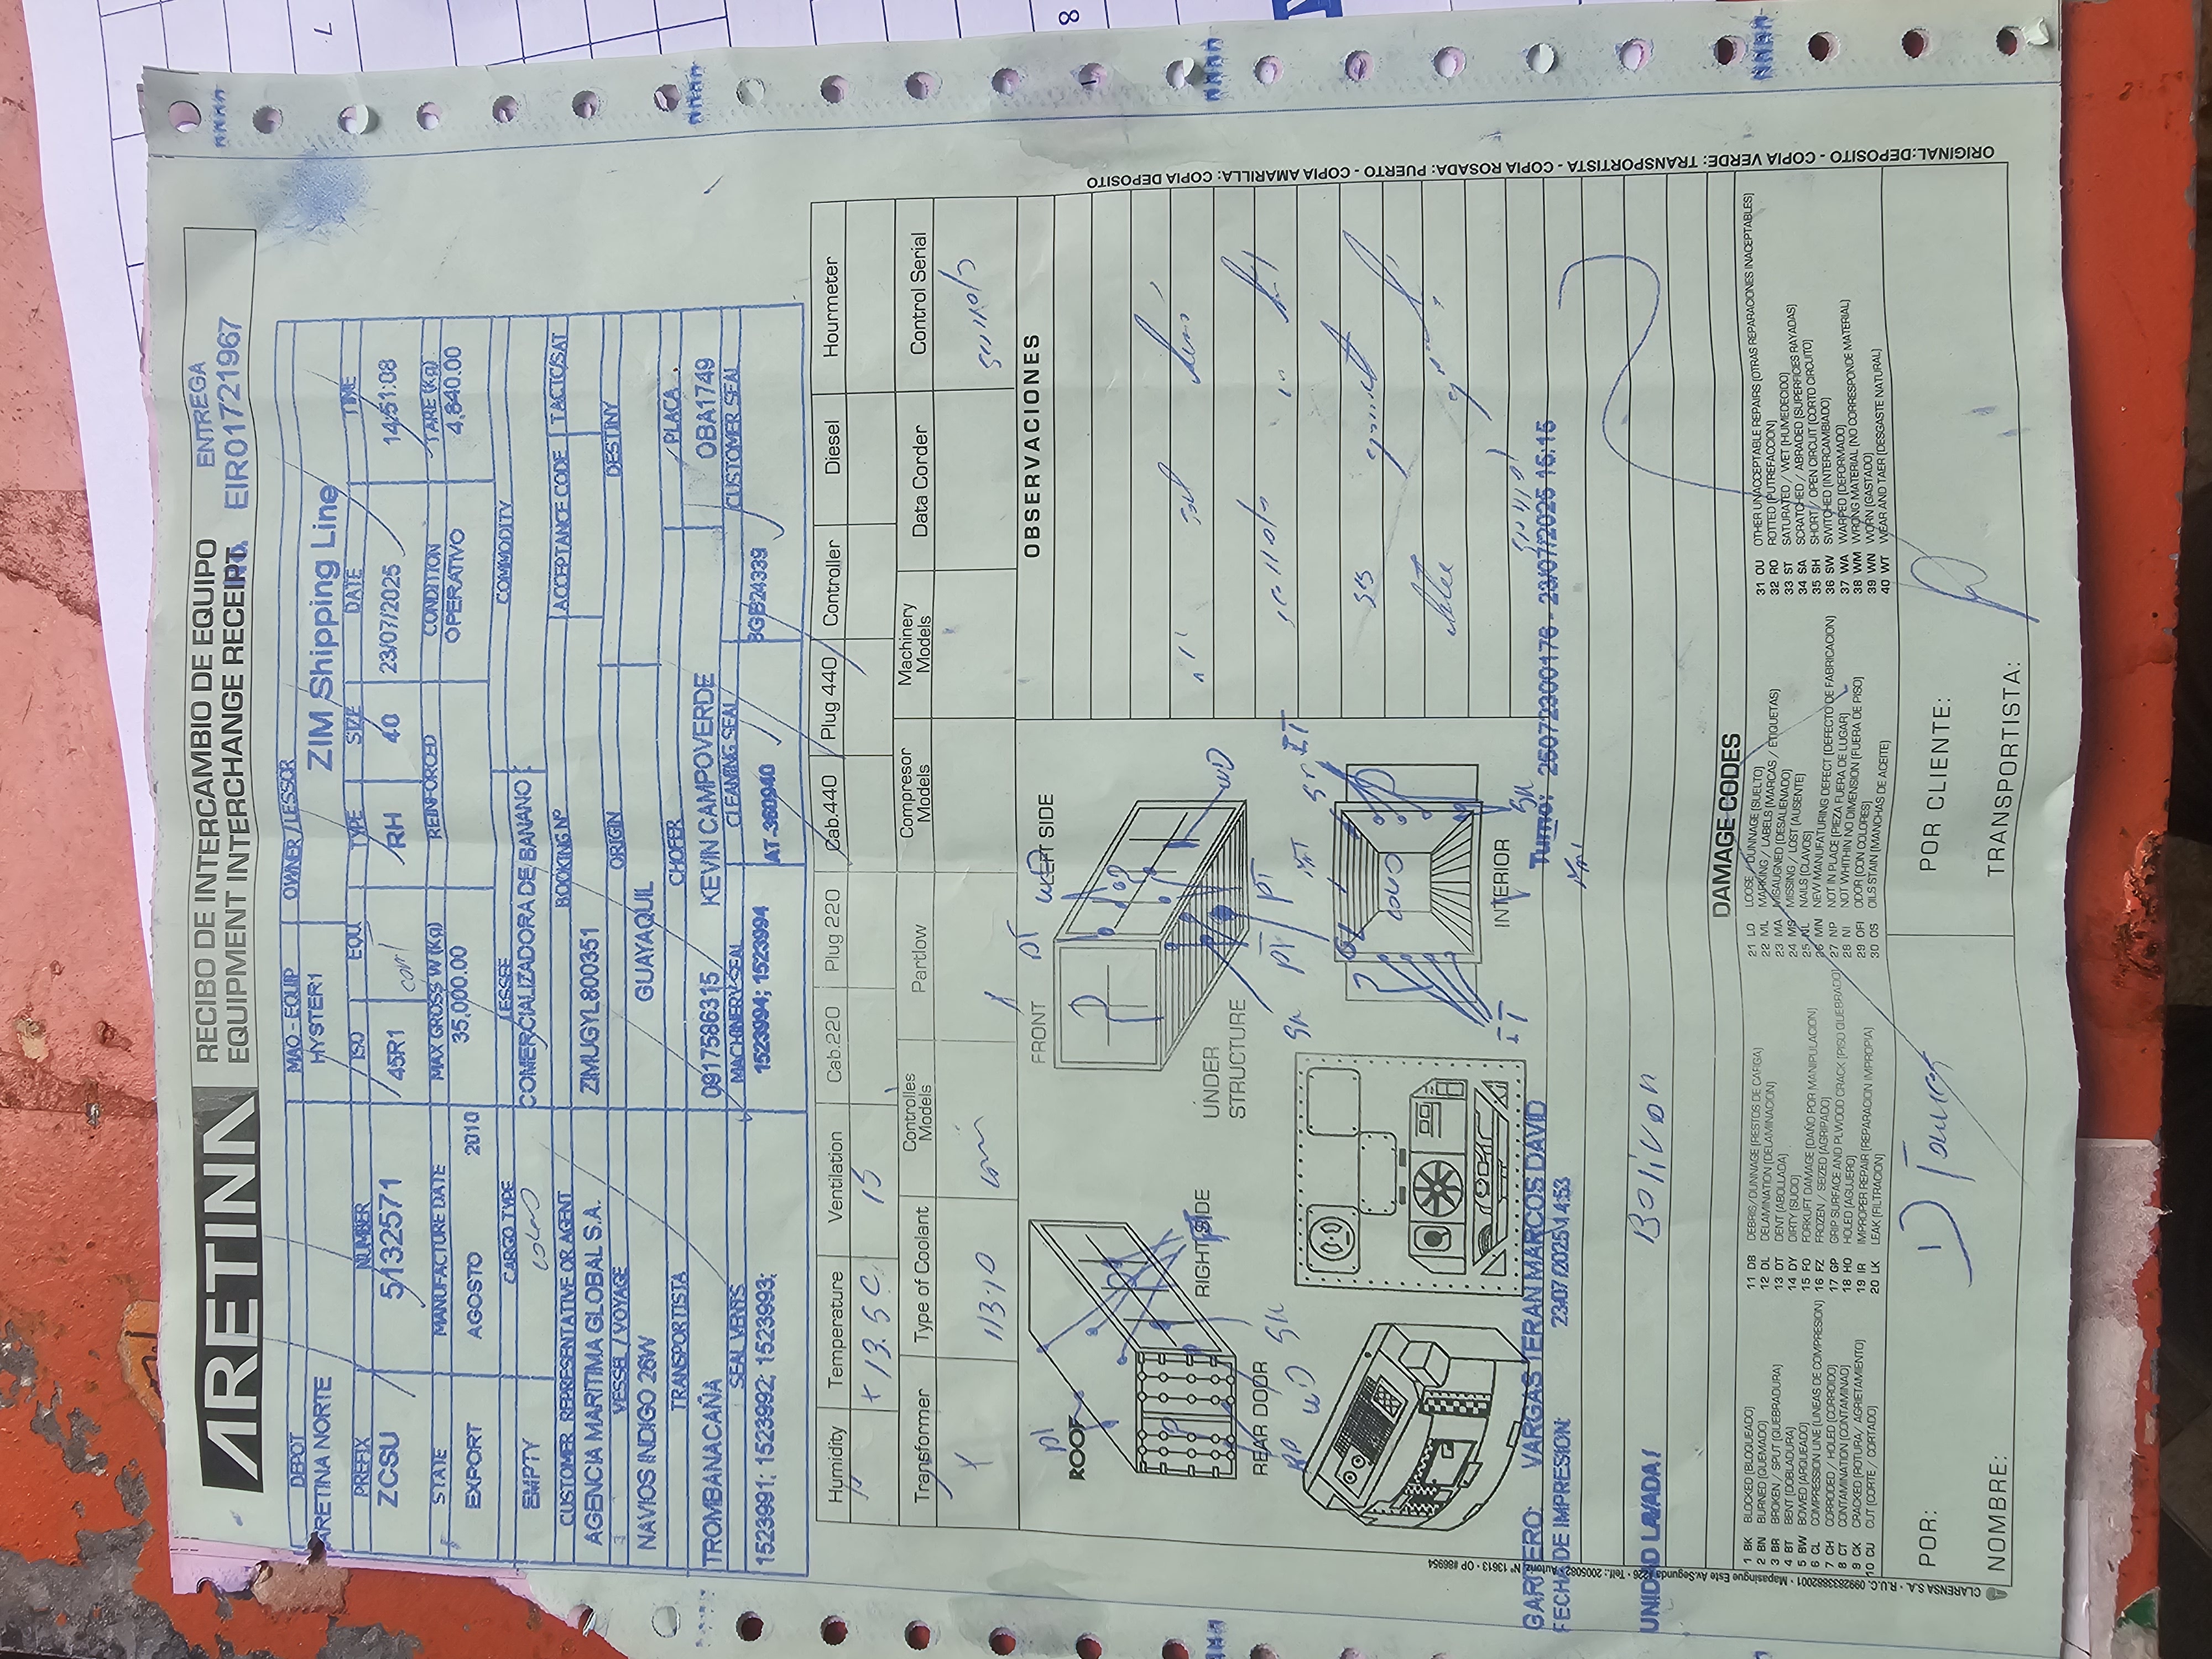 ARETINA
RECIBO DE INTERCAMBIO DE EQUIPO
EQUIPMENT INTERCHANGE RECEIPT
ENTREGA
No. EIR01721967
DEPOT MAQ - EQUIP OWNER / LESSOR
ARETINA NORTE HYSTER1 ZIM Shipping Line
PREFIX NUMBER ISO EQU. TYPE SIZE DATE TIME
ZCSU 5132571 45R1 RH 40 23/07/2025 14:51:08
STATE MANUFACTURE DATE MAX GROSS W (Kg) REINFORCED CONDITION TARE (Kg)
EXPORT AGOSTO 2010 35,000.00 OPERATIVO 4,640.00
CARGO TYPE LESSEE COMMODITY
EMPTY COMERCIALIZADORA DE BANANO
CUSTOMER REPRESENTATIVE OR AGENT BOOKING Nº ACCEPTANCE CODE TACTC/SAT
AGENCIA MARITIMA GLOBAL S.A. ZIMUGYL800351
VESSEL / VOYAGE ORIGIN DESTINY
NAVIOS INDIGO 26W GUAYAQUIL
TRANSPORTISTA CHOFER PLACA
TROMBANACAÑA 0917586315 KEVIN CAMPOVERDE OBA1749
SEAL VENTS MACHINERY SEAL CLEANING SEAL CUSTOMER SEAL
1523991; 1523992; 1523993; 1523994; 1523994 AT-360940 BGB24339
Humidity Temperature Ventilation Cab.220 Plug 220 Cab.440 Plug 440 Controller Diesel Hourmeter
+13.5C 15
Transformer Type of Coolant Controlles Models Partlow Compresor Models Machinery Models Data Corder Control Serial
OBSERVACIONES
FRONT DT LEFT SIDE
ROOF
RIGHT SIDE
UNDER STRUCTURE
WD
REAR DOOR
WD
DT DT
IT
INTERIOR
IT
GARITERO: VARGAS TERAN MARCOS DAVID
Turno: 25072300176 - 23/07/2025 15:15
FECHA DE IMPRESION: 23/07/2025 14:53
UNIDAD LAVADA / Bolivar
DAMAGE CODES
1 BK BLOCKED (BLOQUEADO)
2 BN BURNED (QUEMADO)
3 BR BROKEN / SPUT (QUEBRADURA)
4 BT BENT (DOBLADURA)
5 BW BOWED (ARQUEADO)
6 CL COMPRESSION LINE (LINEAS DE COMPRESION)
7 CH CORRODED / HOLED (CORROIDO)
8 CT CONTAMINATION (CONTAMINAD)
9 CK CRACKED (ROTURA/ AGRIETAMIENTO)
10 CU CUT (CORTE / CORTADO)
11 DB DEBRIS/DUNNAGE (RESTOS DE CARGA)
12 DL DELAMINATION (DELAMINACION)
13 DT DENT (ABOLLADA)
14 DY DIRTY (SUCIO)
15 FO FORKUFT DAMAGE (DAÑO POR MANIPULACION)
16 FZ FROZEN / SEIZED (AGRIPADO)
17 GP GRIP SURFACE AND PLWOOD CRACK (PISO QUEBRADO)
18 HO HOLED (AGUJERO)
19 IR IMPROPER REPAIR (REPARACION IMPROPIA)
20 LK LEAK (FILTRACION)
21 LO LOOSE / DUNNAGE (SUELTO)
22 ML MARKING / LABELS (MARCAS / ETIQUETAS)
23 MA MISAUGNED (DESALIENADO)
24 MS MISSING / LOST (AUSENTE)
25 NL NAILS (CLAVOS)
26 MN NEW MANUFACTURING DEFECT (DEFECTO DE FABRICACION)
27 NP NOT IN PLACE (PIEZA FUERA DE LUGAR)
28 NI NOT WHITHIN NO DIMENSION (FUERA DE PISO)
29 OFI ODOR (CON COLORES)
30 OS OILS STAIN (MANCHAS DE ACEITE)
31 OU OTHER UNACCEPTABLE REPAIRS (OTRAS REPARACIONES INACEPTABLES)
32 RO ROTTED (PUTREFACCION)
33 ST SATURATED / WET (HUMEDECIDO)
34 SA SCRATCHED / ABRADED (SUPERFICIES RAYADAS)
35 SH SHORT / OPEN CIRCUIT (CORTO CIRCUITO)
36 SW SWITCHED (INTERCAMBIADO)
37 WA WARPED (DEFORMADO)
38 WM WRONG MATERIAL (NO CORRESPONDE MATERIAL)
39 WN WORN (GASTADO)
40 WT WEAR AND TAER (DESGASTE NATURAL)
POR: POR CLIENTE:
NOMBRE: TRANSPORTISTA:
ORIGINAL:DEPOSITO - COPIA VERDE: TRANSPORTISTA - COPIA ROSADA: PUERTO - COPIA AMARILLA: COPIA DEPOSITO